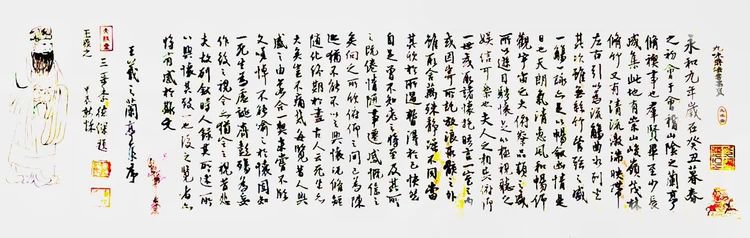 永和九年歲在癸丑暮春
之初會于會稽山陰之蘭亭
脩禊事也羣賢畢至少長
咸集此地有崇山峻嶺茂林
脩竹又有清流激湍映帶
左右引以為流觴曲水列坐
其次雖無絲竹管弦之盛
一觴一詠亦足以暢敘幽情是
日也天朗氣清惠風和暢仰
觀宇宙之大俯察品類之盛
所以遊目騁懷足以極視聽之
娛信可樂也夫人之相與俯仰
一世或取諸懷抱晤言一室之內
或因寄所託放浪形骸之外
雖取舍萬殊靜躁不同當
其欣於所遇暫得於己快然
自足曾不知老之將至及其所
之既倦情隨事遷感慨係之
矣向之所欣俯仰之間已為陳
迹猶不能不以之興懷況脩短
隨化終期於盡古人云死生亦
大矣豈不痛哉每覽昔人興
感之由若合一契未嘗不臨
文嗟悼不能喻之於懷固知
一死生為虛誕齊彭殤為妄
作後之視今亦猶今之視昔悲
夫故列敘時人錄其所述
以興懷其致一也後之覽者亦
將有感於斯文
王羲之蘭亭集序
甲辰秋
王羲之